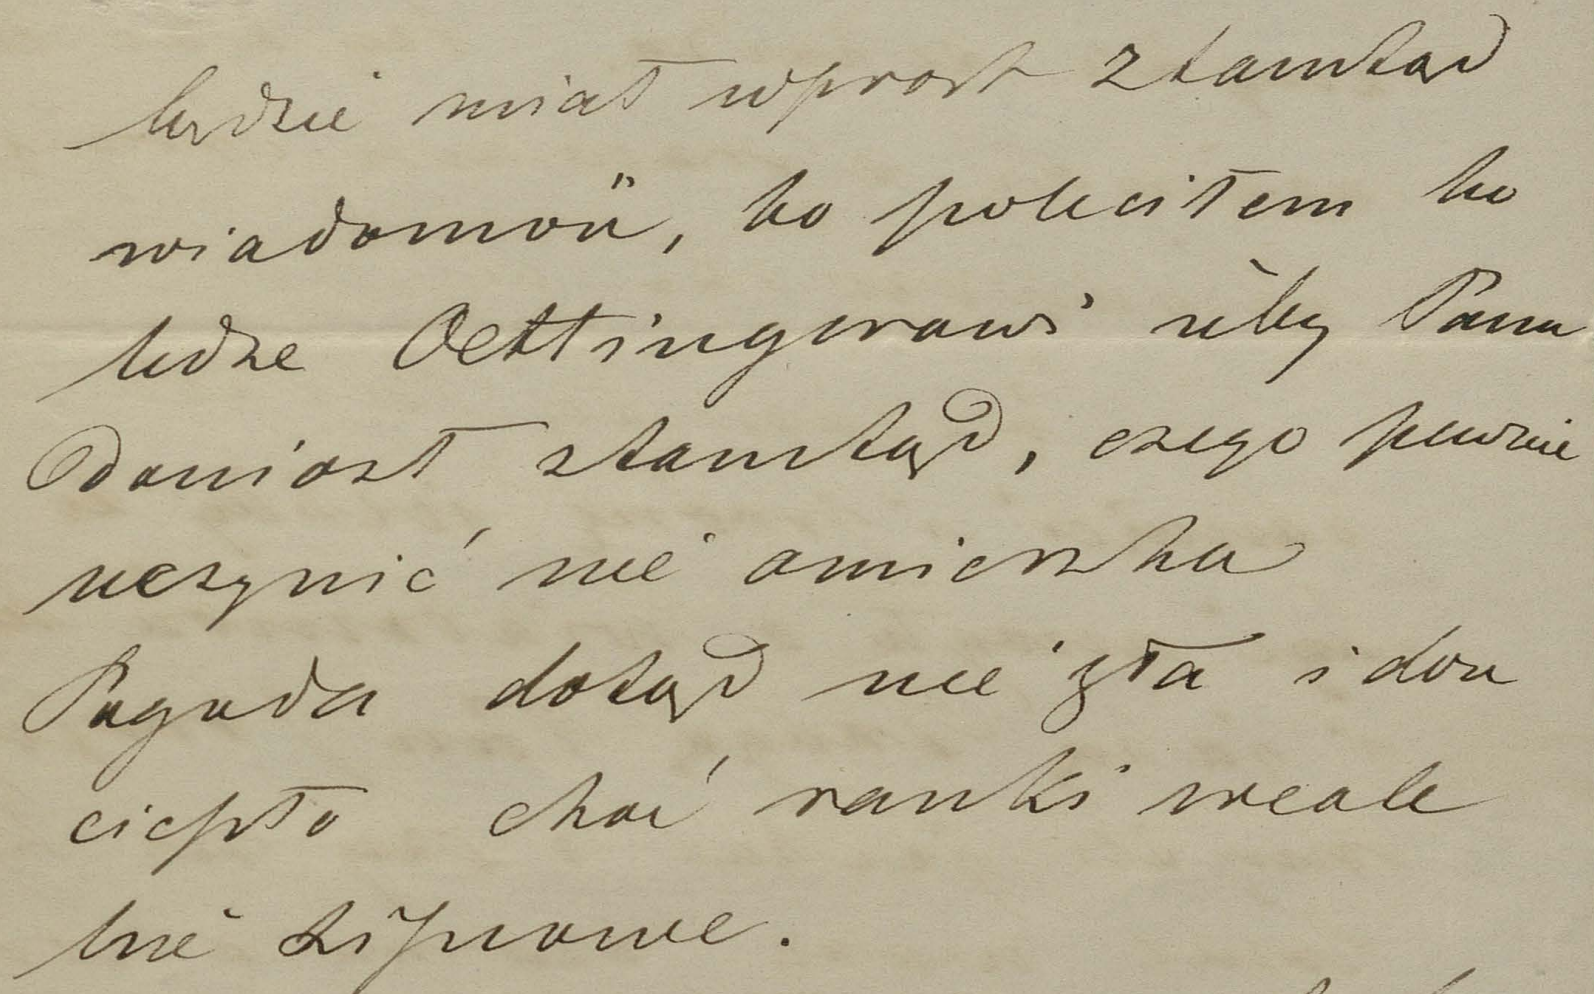 będzie miał wprost ztamtąd
wiadomość, bo poleciłem ko
ledze Oettingerowi żeby Panu
doniósł ztamtąd, czego pewnie
uczynić nie omieszka
Pogoda dotąd nie zła i dosi
ciepło choć ranki wcale
nie lipcowe.